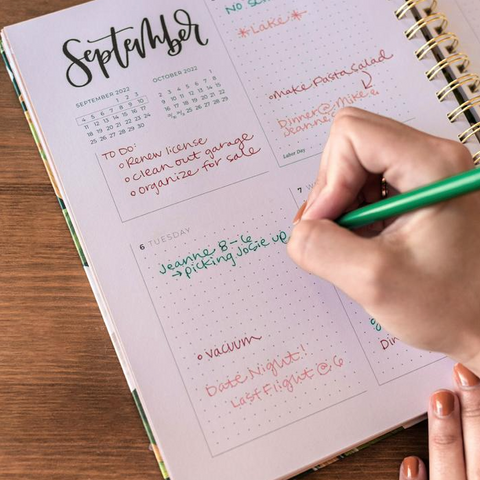 September
SEPTEMBER 2022
1 2 3
4 5 6 7 8 9 10
11 12 13 14 15 16 17
18 19 20 21 22 23 24
25 26 27 28 29 30
OCTOBER 2022
1
2 3 4 5 6 7 8
9 10 11 12 13 14 15
16 17 18 19 20 21 22
25 26 27 28 29
TO DO:
Renew license
clean out garage
organize for sale
NO
*Lake*
Make Pasta Salad
Dinner @ Mike
Jeanne
Labor Day
6 TUESDAY
Jeanne 8-6
→ picking Josie up
vacuum
Date Night!
Last Flight @ 6
7 W
Din